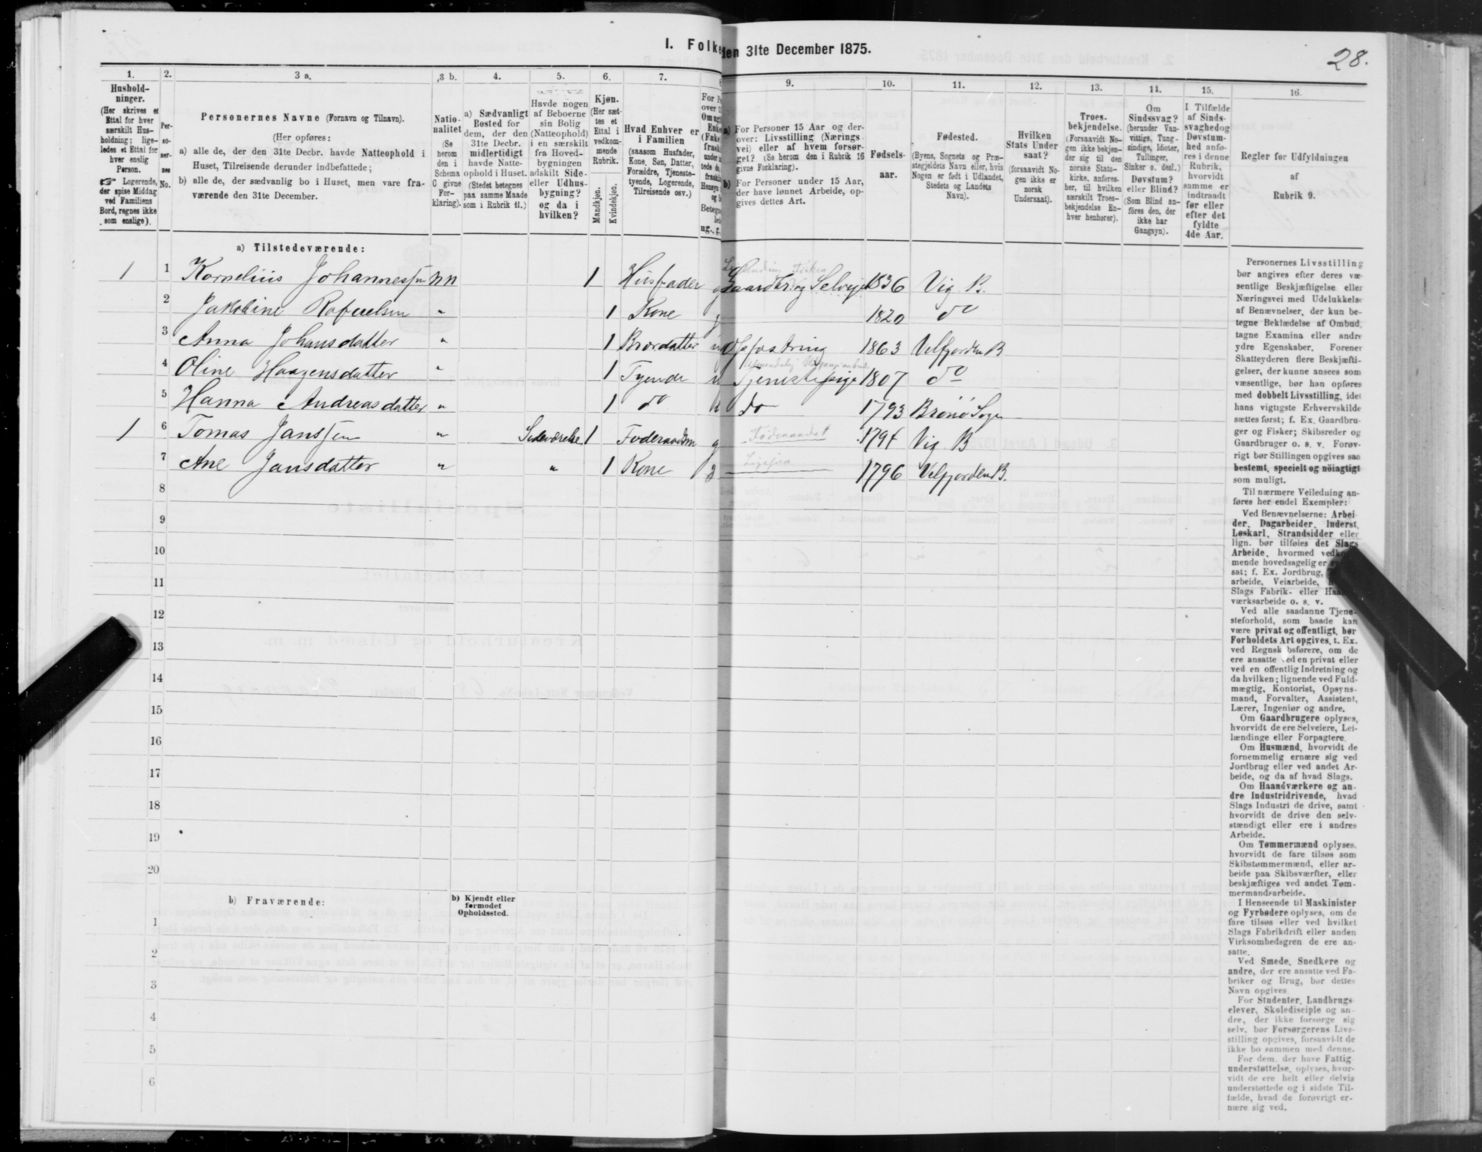 I. Folke
den 31te December 1875.
28.
1.
2.
3 a.
3 b.
4.
5.
6.
7.
9.
10.
11.
12.
13.
14.
15.
16.
Hushold-
ninger.
(Her skrives et
Ettal for hver
særskilt Hus-
holdning; lige-
ledes et Ettal for
hver enslig
Person.
☞ Logerende,
der spise Middag
ved Familiens
Bord, regnes ikke
som enslige).
Per-
so-
ner-
nes
No.
Personernes Navne (Fornavn og Tilnavn).
(Her opføres:
a) alle de, der den 31te Decbr. havde Natteophold i
Huset, Tilreisende derunder indbefattede;
b) alle de, der sædvanlig bo i Huset, men vare fra-
værende den 31te December.
Natio-
nalitet
(Se
herom
den i
Schema
C givne
For-
klaring).
a) Sædvanligt
Bosted for
dem, der den
31te Decbr.
midlertidigt
havde Natte-
ophold i Huset.
(Stedet betegnes
paa samme Maade
som i Rubrik 11.)
Havde nogen
af Beboerne
sin Bolig
(Natteophold)
i en særskilt
fra Hoved-
bygningen
adskilt Side-
eller Udhus-
bygning?
og da i
hvilken?
Kjøn.
(Her sæt-
tes et
Ettal i
vedkom-
mende
Rubrik.
Mandkjøn.
Kvindekjøn.
Hvad Enhver er
i Familien
(saasom Husfader,
Kone, Søn, Datter,
Forældre, Tjeneste-
tyende, Logerende,
Tilreisende osv.)
a) For Personer 15 Aar og der-
over: Livsstilling (Nærings-
vei) eller af hvem forsør-
get? (Se herom den i Rubrik 16
givne Forklaring).
b) For Personer under 15 Aar,
der have lønnet Arbeide, op-
gives dettes Art.
Fødsels-
aar.
Fødested.
(Byens, Sognets og Præ-
stegjeldets Navn eller, hvis
Nogen er født i Udlandet,
Stedets og Landets
Navn).
Hvilken
Stats Under
saat?
(forsaavidt No-
gen ikke er
norsk
Undersaat).
Troes-
bekjendelse.
(Forsaavidt No-
gen ikke bekjen-
der sig til den
norske Stats-
kirke, anføres
her, til hvilken
særskilt Troes-
bekjendelse En-
hver henhører).
Om
Sindssvag?
(herunder Van-
vittige, Tung-
sindige, Idioter,
Tullinger,
Sinker o. desl.)
Døvstum?
eller Blind?
(Som Blind an-
føres den, der
ikke har
Gangsyn).
I Tilfælde
af Sinds-
svaghed og
Døvstum-
hed anfø-
res i denne
Rubrik,
hvorvidt
samme er
indtraadt
før eller
efter det
fyldte
4de Aar.
Regler for Udfyldningen
af
Rubrik 9.
a) Tilstedeværende:
1 1 Kornelius Johannessen n 1 Husfader g Gaardbr og Selveier 1836 Vig B.
2 Jakobine Rafaelsen „ 1 Kone g 1820 do
3 Anna Johansdatter „ 1 Brordatter 1863 Velfjorden B
4 Oline Haagensdatter „ 1 Tyende Tjenestepige 1807 do
5 Hanna Andreasdatter „ 1 do do 1793 Brønø Sogn
1 6 Tomas Janssen „ Sideværelse 1 Foderaadsm g Føderaadet Vig B
7 Ane Jansdatter „ „ 1 Kone g Ligesaa 1796 Velfjorden B.
8
9
10
11
12
13
14
15
16
17
18
19
20
b) Fraværende:
b) Kjendt eller
formodet
Opholdssted.
1
2
3
4
5
6
Personernes Livsstilling
bør angives efter deres væ-
sentlige Beskjæftigelse eller
Næringsvei med Udelukkelse
af Benævnelser, der kun be-
tegne Beklædelse af Ombud,
tagne Examina eller andre
ydre Egenskaber. Forener
Skatteyderen flere Beskjæfti-
gelser, der kunne ansees som
væsentlige, bør han opføres
med dobbelt Livsstilling, idet
hans vigtigste Erhvervskilde
sættes først; f. Ex. Gaardbru-
ger og Fisker; Skibsreder og
Gaardbruger o. s. v. Forøv-
rigt bør Stillingen opgives saa
bestemt, specielt og nöiagtigt
som muligt.
Til nærmere Veiledning an-
føres her endel Exempler:
Ved Benævnelserne: Arbei-
der, Dagarbeider, Inderst,
Løskarl, Strandsidder eller
lign. bør tilføies det Slags
Arbeide, hvormed
mende hovedsagelig er
sat; f. Ex. Jordbrug,
arbeide, Veiarbeide,
Slags Fabrik- eller
værksarbeide o. s. v.
Ved alle saadanne Tjene-
steforhold, som baade kan
være privat og offentligt, bør
Forholdets Art opgives, t. Ex.
ved Regnskabsførere, om de
ere ansatte ved en privat eller
ved en offentlig Indretning og
da hvilken; lignende ved Fuld-
mægtig, Kontorist, Opsyns-
mand, Forvalter, Assistent,
Lærer, Ingeniør og andre.
Om Gaardbrugere oplyses,
hvorvidt de ere Selveiere, Lei-
lændinge eller Forpagtere.
Om Husmænd, hvorvidt de
fornemmelig ernære sig ved
Jordbrug eller ved andet Ar-
beide, og da af hvad Slags.
Om Haandværkere og an-
dre Industridrivende, hvad
Slags Industri de drive, samt
hvorvidt de drive den selv-
stændigt eller ere i andres
Arbeide.
Om Tømmermænd oplyses,
hvorvidt de fare tilsøs som
Skibstømmermænd, eller ar-
beide paa Skibsværfter, eller
beskjæftiges ved andet Tøm-
mermandsarbeide.
I Henseende til Maskinister
og Fyrbødere oplyses, om de
fare tilsøs eller ved hvilket
Slags Fabrikdrift eller anden
Virksomhedsgren de ere an-
satte.
Ved Smede, Snedkere og
andre, der ere ansatte ved Fa-
briker og Brug, bør dettes
Navn opgives.
For Studenter, Landbrugs-
elever, Skoledisciple og an-
dre, der ikke forsørge sig
selv, bør Forsørgerens Livs-
stilling opgives, forsaavidt de
ikke bo sammen med denne.
For dem, der have Fattig-
understøttelse, oplyses, hvor-
vidt de ere helt eller delvis
understøttede og i sidste Til-
fælde, hvad de forøvrigt er-
nære sig ved.